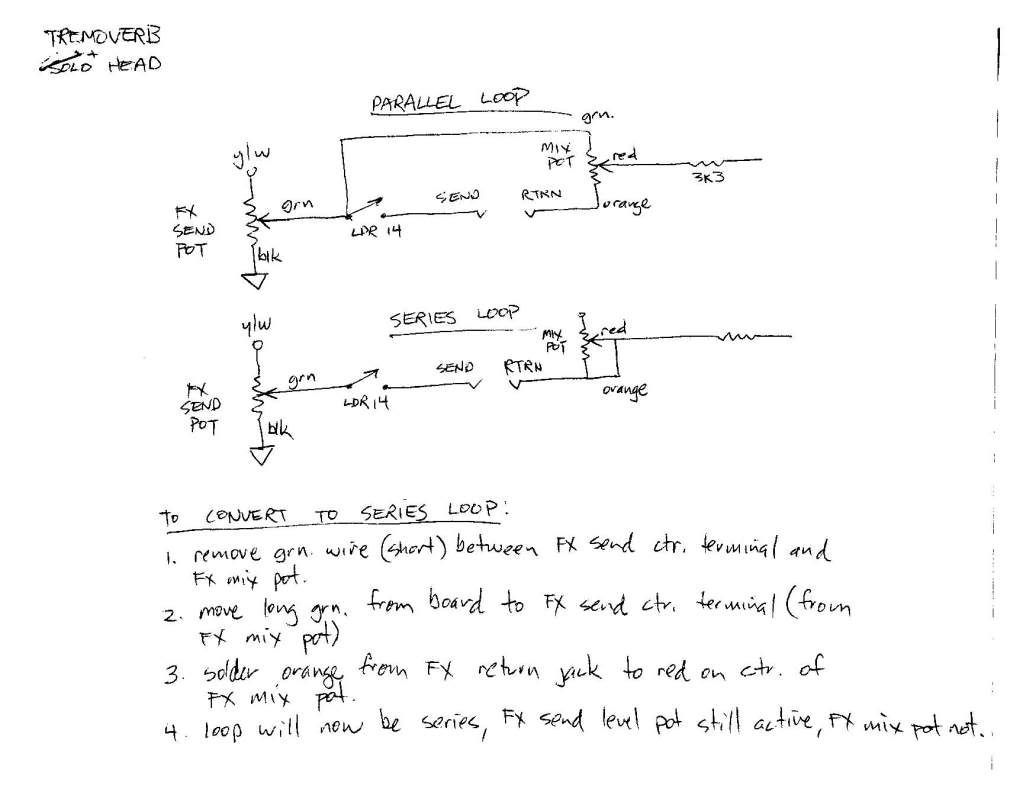 TREMOVERB
SOLO HEAD
PARALLEL LOOP
grn.
y/w
MIX
POT
red
3K3
FX
SEND
POT
grn
LDR 14
SEND
RTRN
orange
blk
SERIES LOOP
y/w
MIX
POT
red
FX
SEND
POT
grn
LDR 14
SEND
RTRN
orange
blk
TO CONVERT TO SERIES LOOP:
1. remove grn. wire (short) between FX send ctr. terminal and
FX mix pot.
2. move long grn. from board to FX send ctr. terminal (from
FX mix pot)
3. solder orange from FX return jack to red on ctr. of
FX mix pot.
4. loop will now be series, FX send level pot still active, FX mix pot not.